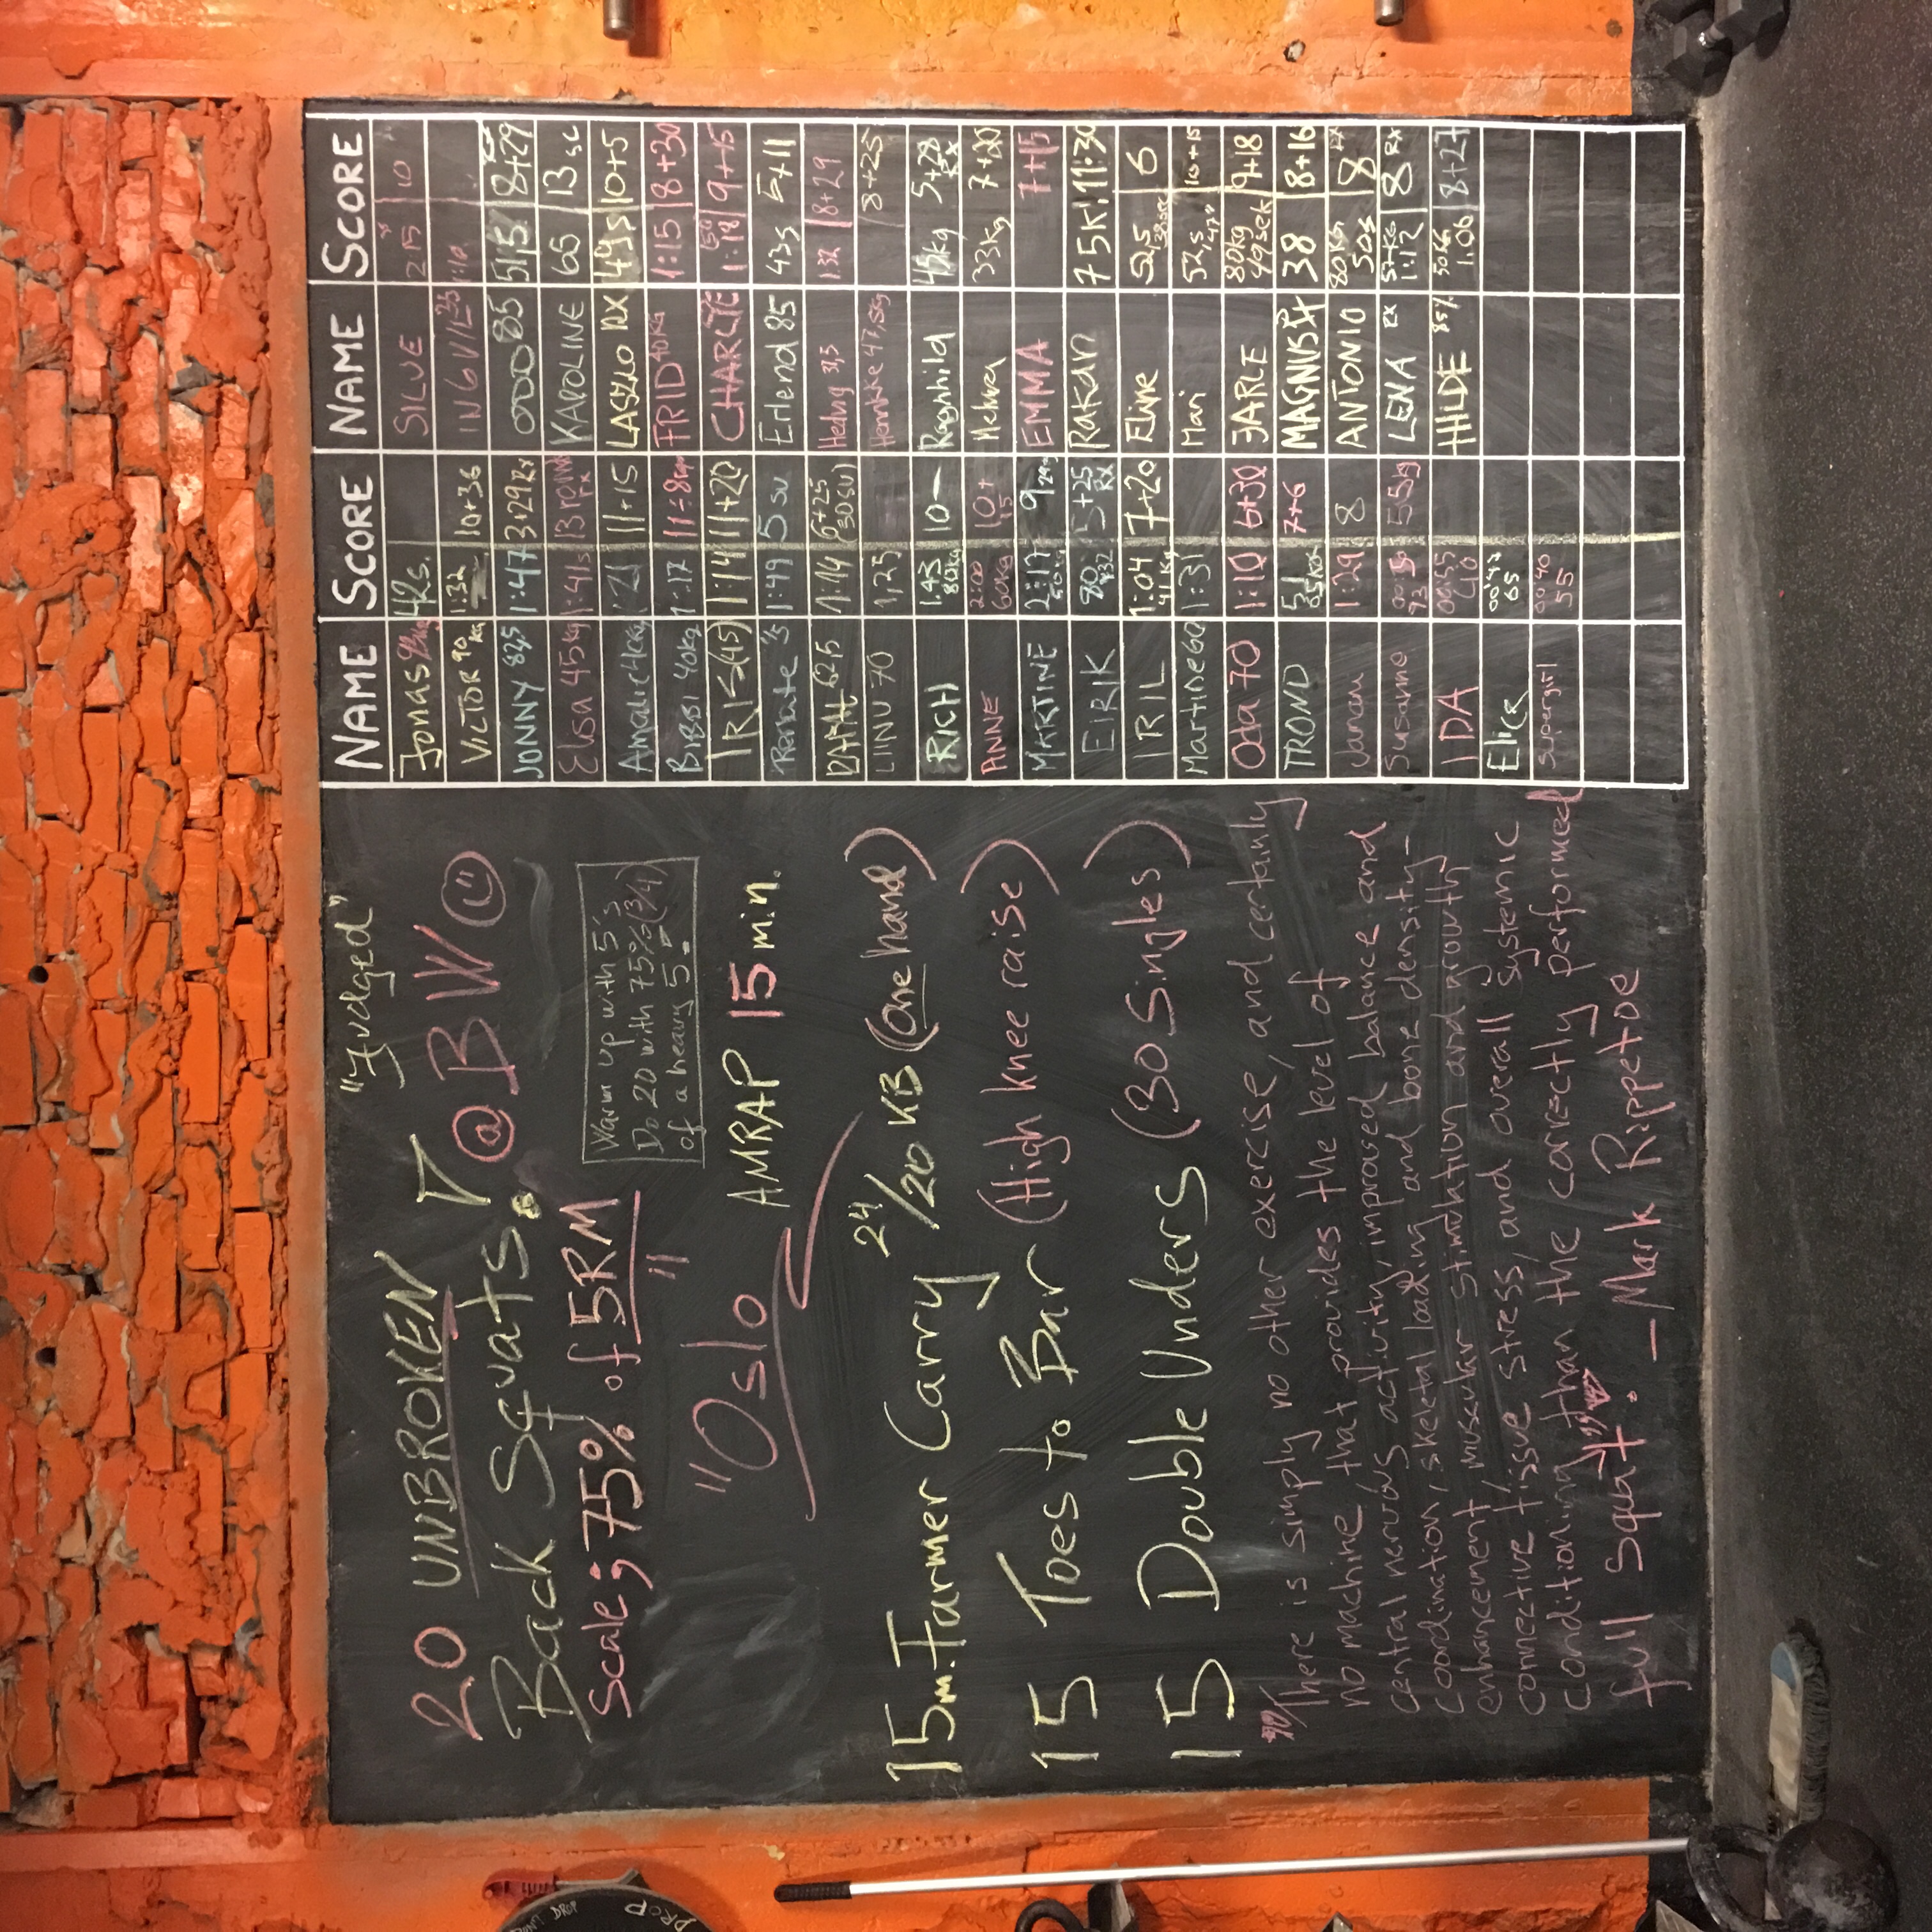 "Judged"
20 UNBROKEN
Back Squats. @ BW
Scale; 75% of 5RM
Warm up with 5's
Do 20 with 75% (3/4)
of a heavy 5.
"Oslo"
AMRAP 15 min.
15m. Farmer Carry 24/20 KB (One hand)
15 Toes to Bar (High knee raise)
15 Double Unders (30 Singles)
"There is simply no other exercise, and certainly
no machine, that provides the level of
central nervous activity, improved balance and
coordination, skeletal loading and bone density
enhancement, muscular stimulation and growth,
connective tissue stress, and overall systemic
conditioning than the correctly performed
full squat". — Mark Rippetoe
NAME SCORE NAME SCORE
Jonas 42s. SILVE 2:15 10
VICTOR 90 kg 1:32 10+36 INGVILD
JONNY 82,5 1:47 3+29 Rx 85 8+29
Elsa 45kg 1:41s 13 rounds rx KAROLINE 65 13 sc
Amalie 11+15 LASZLO RX 49s 10+5
40kg 1:17 FRID 40kg 1:15 8+30
IRIS (45) 1:14 11+20 CHARLIE 1:18 9+15
Renate 1:49 5 su Erlend 85 43s 5+11
62,5 1:14 6+25 (30 SU) Hedvig 1:32 8+29
LINN 70 1,25 47,5kg 8+25
RICH 1:43 80kg 10 Ragnhild 45kg 5+28 Rx
ANNE 2:00 60kg 10+15 33kg
MARTINE 2:17 9 EMMA 7+15
EIRIK 5+25 RX Rakan 75k 11+30
IRIL 1:04 41kg 7+20 Eline 52,5 6
Martine 60 1:31 Mari 10+15
Oda 70 1:10 6+30 JARLE 80kg 49sek 9+18
TROND 51 7+6 MAGNUS 38 8+16
1:29 8 ANTONIO 80kg 50s 8 RX
Susanne 55kg LENA RX 57kg 1:12 8 Rx
IDA 00:55 40 HILDE 85% 1.06 8+27
00:47 65
Supergirl 00:40 55